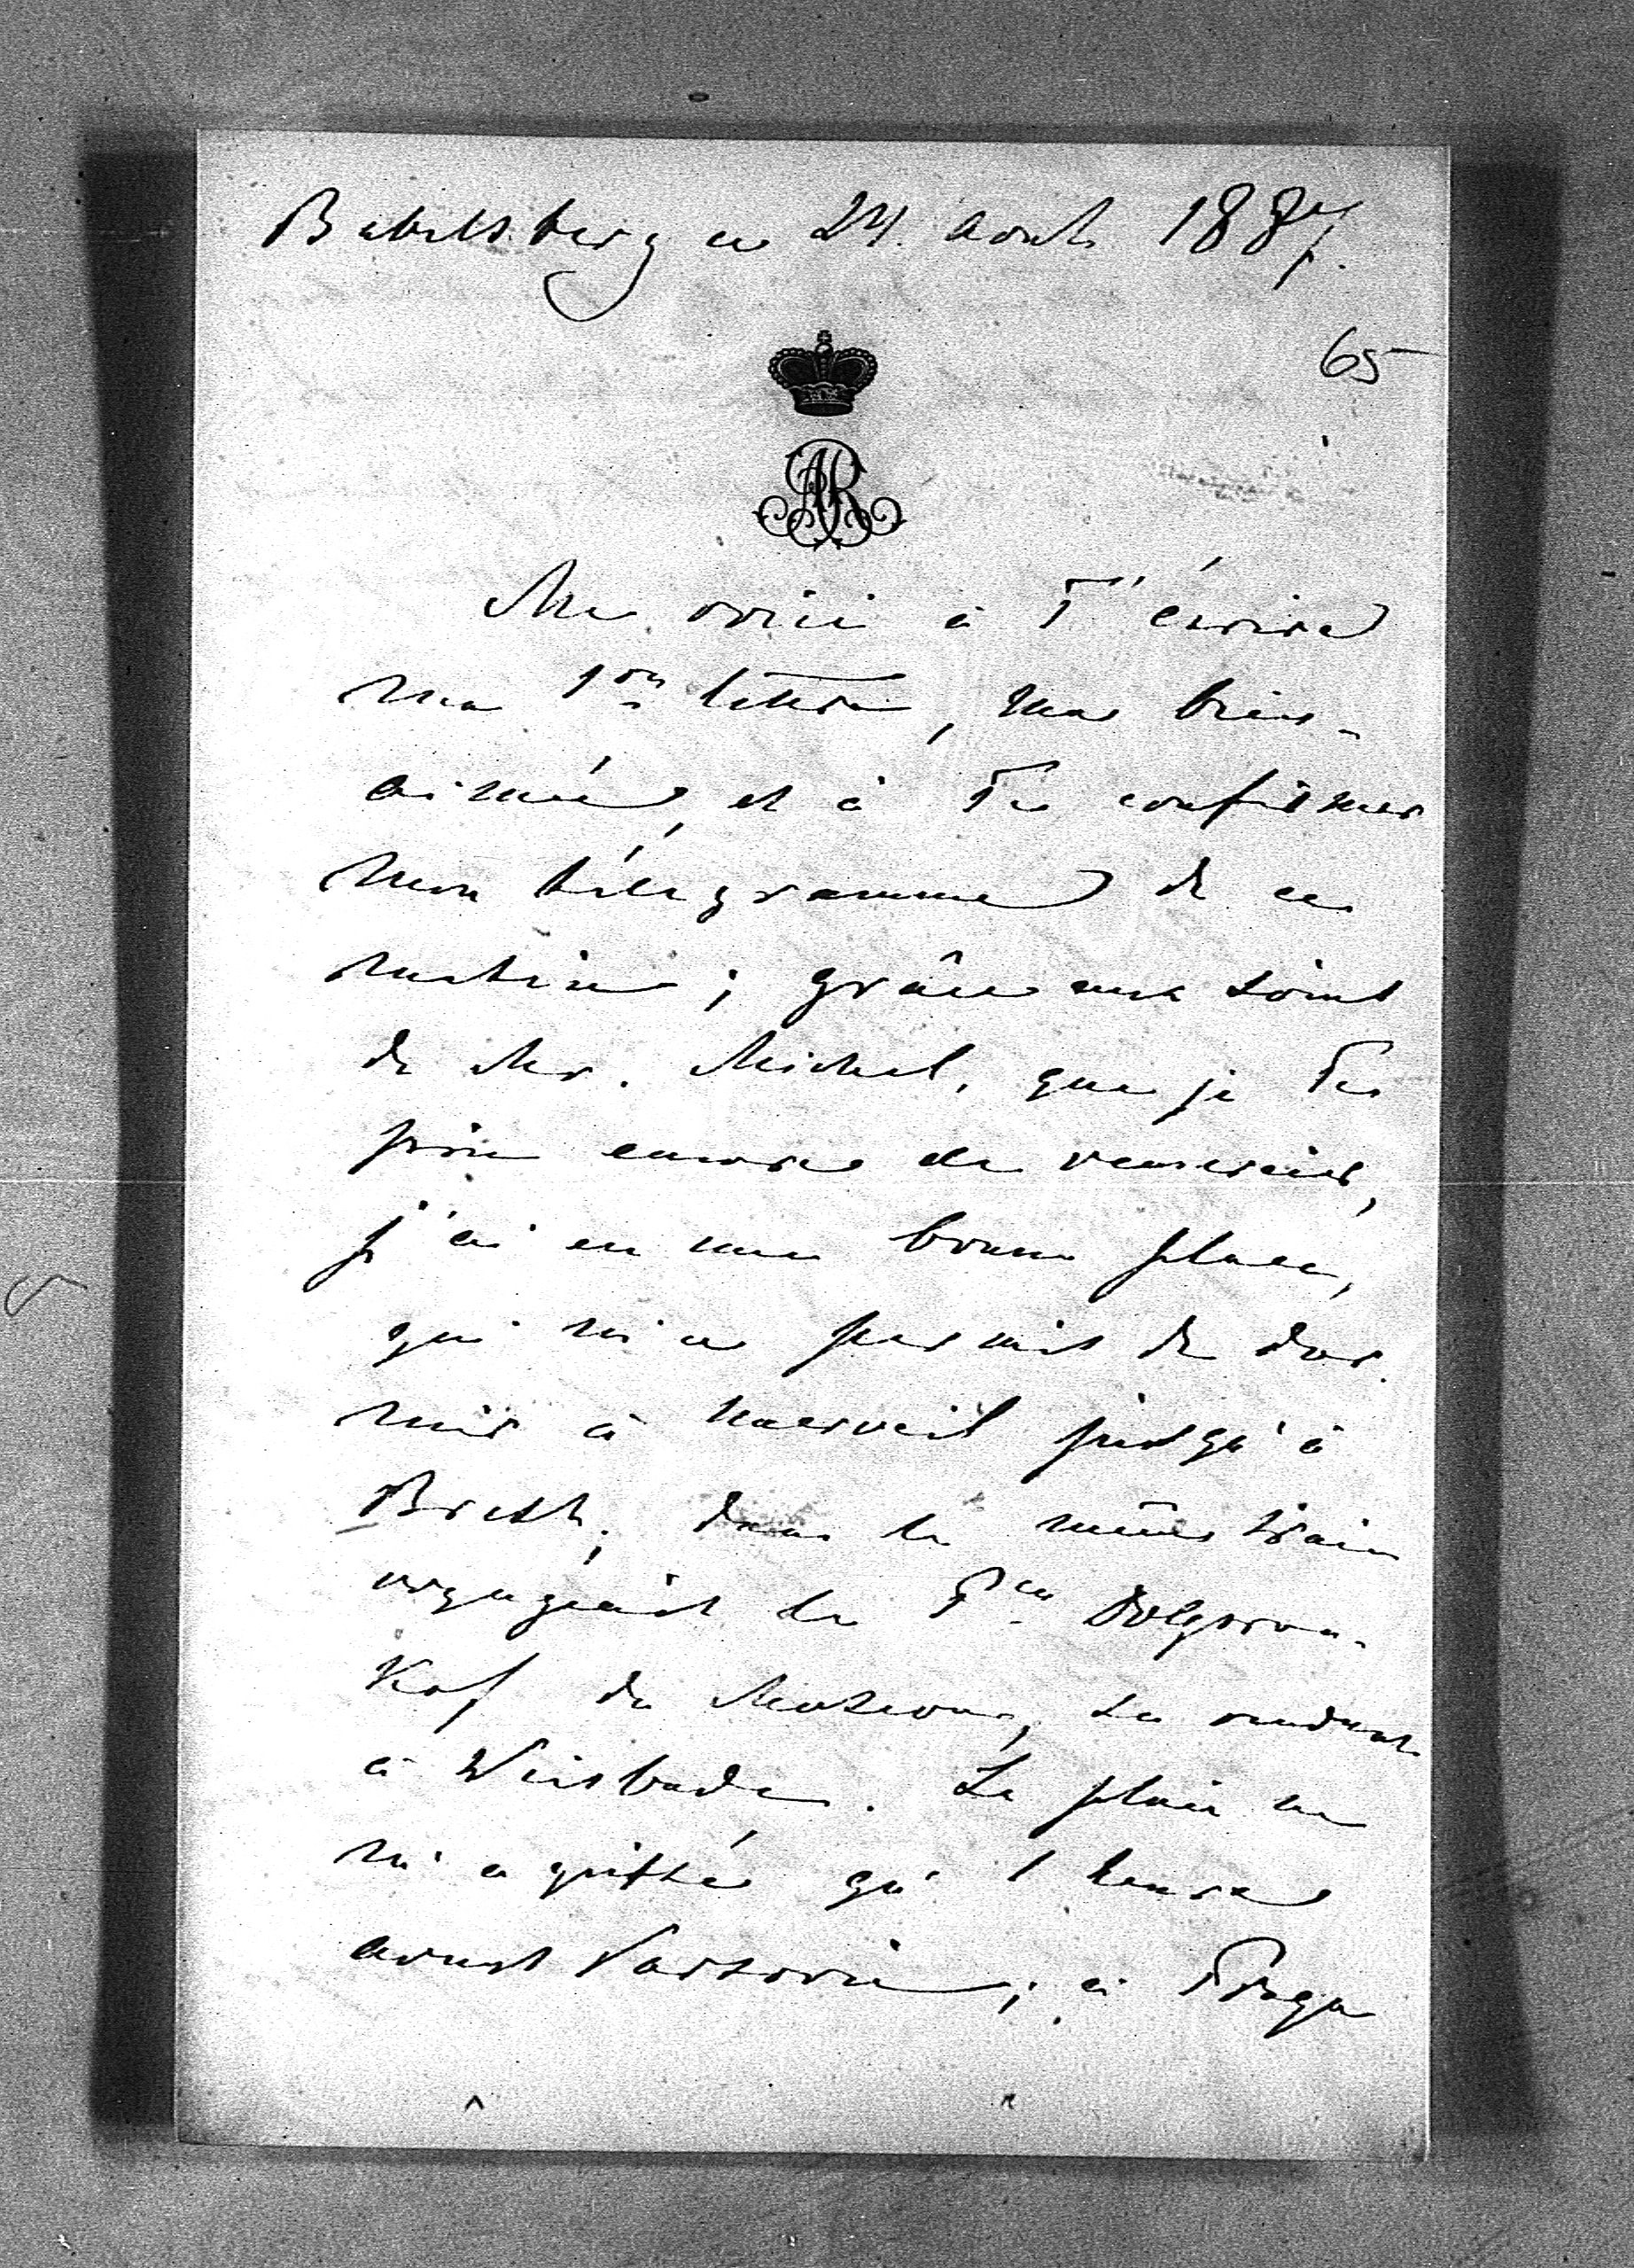 Babelsberg ce 24. août 1887.
65
AR
Me voici à T'écrire
ma 1re lettre, ma bien-
aimée, et à Te confirmer
mon télégramme de ce
matin; grâce aux soins
de Mr. Michel, que je Te
prie encore de remercier,
j'ai eu une bonne place,
qui m'a permis de dor-
mir à merveil jusqu'à
Brest; dans le même train
voyageait le Pce Dolgorou-
kof de Moscou, se rendant
à Wiesbaden. La pluie ne
m'a quittée qu' 1 heure
avant Varsovie; à Praga